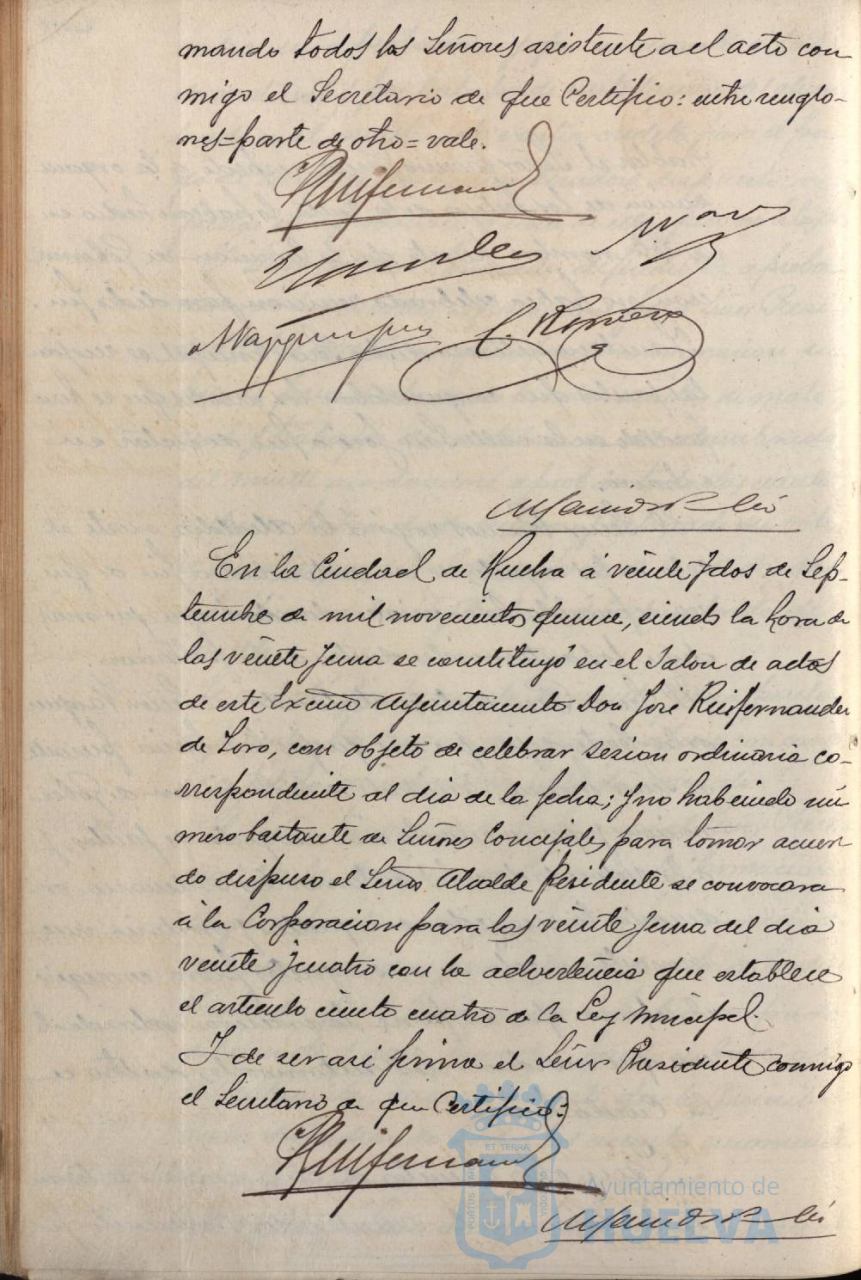 mando todos los Señores asistente a el acto con
migo el Secretario de que Certifico: entre renglo-
nes=parte de otro=vale.
Ruifernand
C. Romero
En la Ciudad de Huelva á veinte y dos de Sep-
tiembre de mil novecientos quince, siendo la hora de
las veinte y una se constituyó en el Salon de actos
de este Excmo Ayuntamiento Don José Ruifernandez
de Toro, con objeto de celebrar sesion ordinaria co-
rrespondiente al dia de la fecha; y no habiendo nú
mero bastante de Señores Concejales para tomar acuer
do dispuso el Señor Alcalde Presidente se convocara
á la Corporacion para las veinte y una del dia
veinte y cuatro con la advertencia que establece
el articulo ciento cuatro de la Ley Municipal.
Y de ser asi firma el Señor Presidente conmigo
el Secretario de que Certifico:
Ruifernand
ET TERRA
Ayuntamiento de
HUELVA